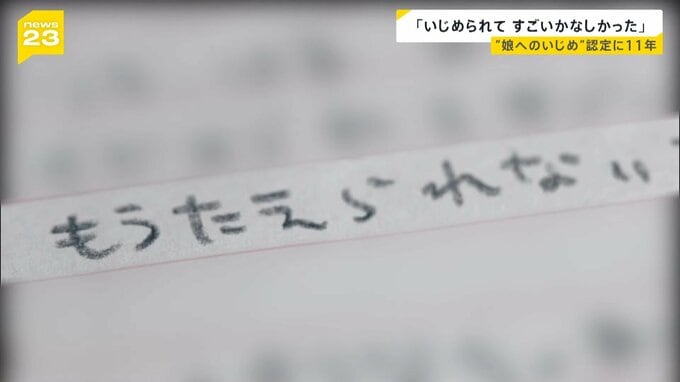 news
23
「いじめられて すごいかなしかった」
“娘へのいじめ”認定に11年
もうたえられない